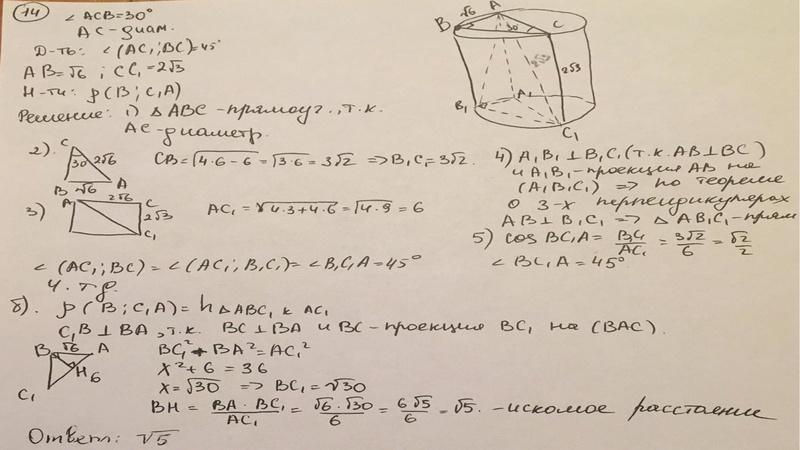 14
∠ACB=30°
AC-диам.
Д-ть: ∠(AC₁;BC)=45°
AB=√6 ; CC₁=2√3
Н-ти: ρ(B;C₁A)
Решение: 1) △ABC-прямоуг., т.к.
AC-диаметр.
B √6 A 30 C 2√3 B₁ A₁ C₁
2). C 30 2√6 B √6 A
CB=√4·6-6=√3·6=3√2 ⇒B₁C₁=3√2.
3) A 2√6 C 2√3 C₁
AC₁=√4·3+4·6=√4·9=6
4) A₁B₁⊥B₁C₁(т.к. AB⊥BC)
и A₁B₁-проекция AB на
(A₁B₁C₁) ⇒ по теореме
о 3-х перпендикулярах
AB⊥B₁C₁ ⇒ △AB₁C₁-прям
5) cos BC₁A= B₁C₁/AC₁ = 3√2/6 = √2/2
∠BC₁A=45°
∠(AC₁;BC)=∠(AC₁;B₁C₁)=∠B₁C₁A=45°
ч.т.д.
б). ρ(B;C₁A)=h △ABC₁ к AC₁
C₁B⊥BA, т.к. BC⊥BA и BC-проекция BC₁ на (BAC).
B √6 A H 6 C₁
BC₁²+BA²=AC₁²
x²+6=36
x=√30 ⇒BC₁=√30
BH = BA·BC₁/AC₁ = √6·√30/6 = 6√5/6 = √5. -искомое расстояние
Ответ: √5